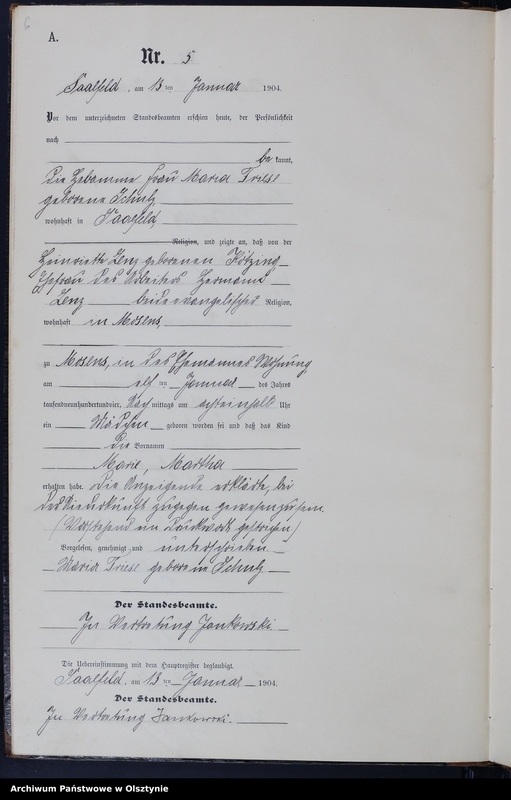 6
A.
Nr. 5
Saalfeld, am 13 ten Januar 1904.
Vor dem unterzeichneten Standesbeamten erschien heute, der Persönlichkeit
nach
be kannt,
die Hebamme Frau Maria Friese
geborene Schulz
wohnhaft in Saalfeld
Religion, und zeigte an, daß von der
Henriette Lenz geborenen
Ehefrau des Arbeiters Hermann
Lenz beide evangelischer Religion,
wohnhaft in Mosens,
zu Mosens, in des Ehemannes Wohnung,
am elf ten Januar des Jahres
tausendneunhundertundvier, Nach mittags um achteinhalb Uhr
ein Mädchen geboren worden sei und daß das Kind
die Vornamen
Marie, Martha
erhalten habe. Die Anzeigende erklärte, bei
der Niederkunft zugegen gewesen zu sein.
(Vorstehend ein Druckwort gestrichen)
Vorgelesen, genehmigt und unterschrieben.
Maria Friese geborene Schulz
Der Standesbeamte.
In Vertretung Jankowski.
Die Uebereinstimmung mit dem Hauptregister beglaubigt.
Saalfeld, am 13 ten Januar 1904.
Der Standesbeamte.
In Vertretung Jankowski.
Archiwum Państwowe w Olsztynie